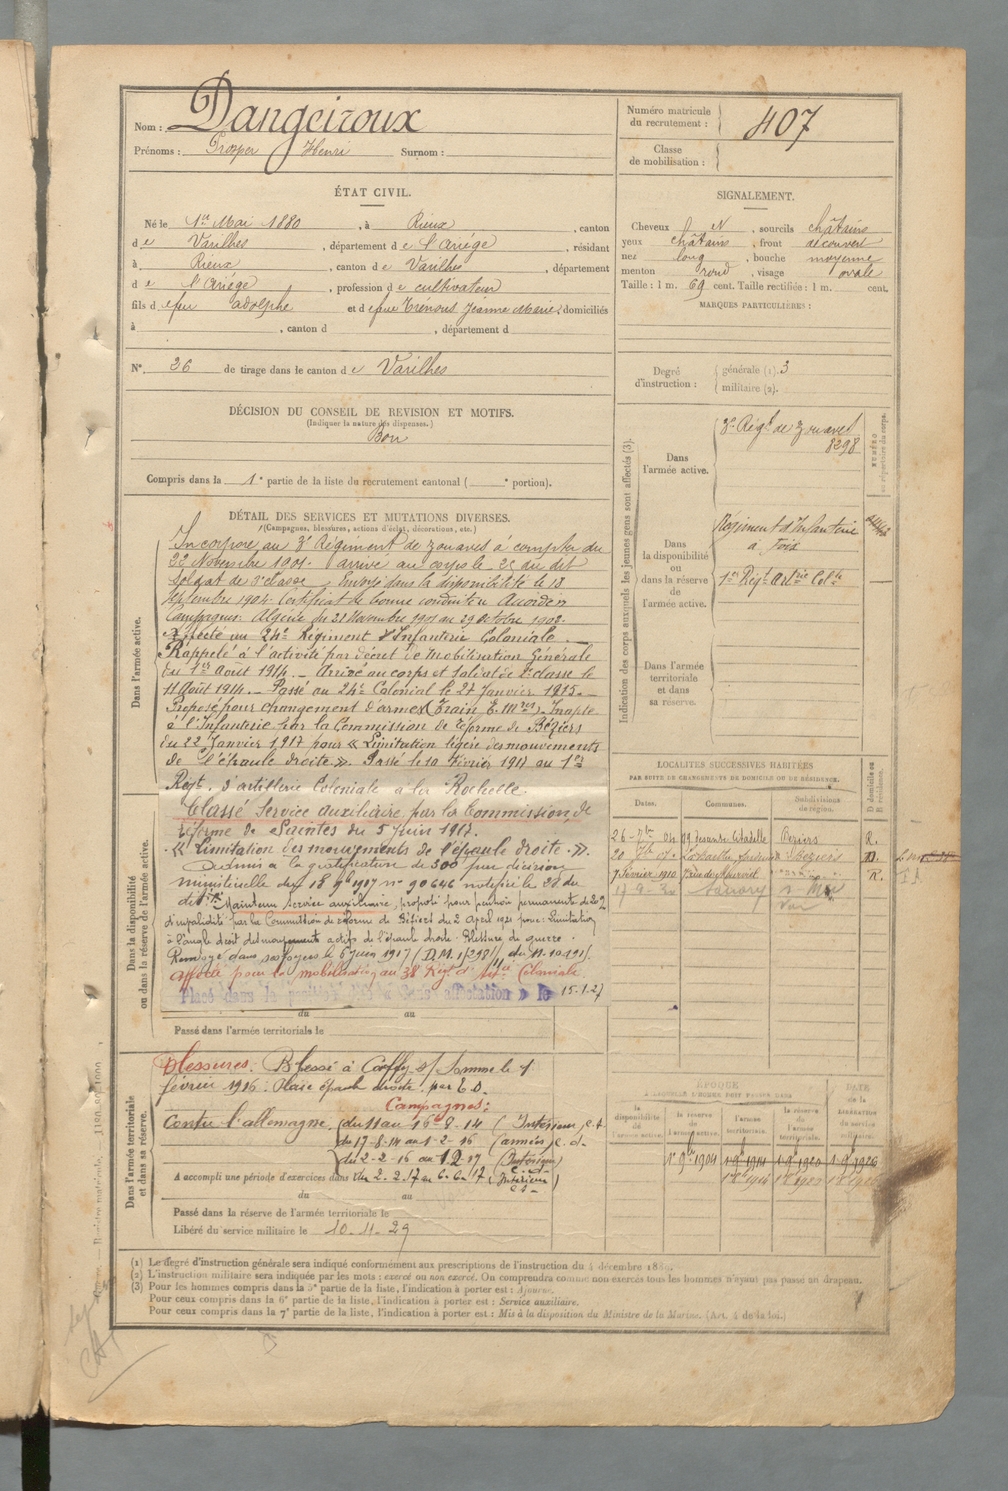 Nom : Dangeiroux
Prénoms : Prosper Henri Surnom :
Numéro matricule du recrutement : 407
Classe de mobilisation :
ÉTAT CIVIL.
Né le 1er Mai 1880, à Rieux, canton
de Varilhes, département de l'Ariège, résidant
à Rieux, canton de Varilhes, département
de l'Ariège, profession de cultivateur
fils de feu Adolphe et de feue Trénous Jeanne Marie, domiciliés
à , canton d , département d
N° 26 de tirage dans le canton de Varilhes
SIGNALEMENT.
Cheveux N, sourcils châtains
yeux châtains, front découvert
nez long, bouche moyenne
menton rond, visage ovale
Taille : 1 m. 69 cent. Taille rectifiée : 1 m. cent.
MARQUES PARTICULIÈRES :
Degré d'instruction : générale (1). 3
militaire (2).
DÉCISION DU CONSEIL DE REVISION ET MOTIFS.
(Indiquer la nature des dispenses.)
Bon
Compris dans la 1e partie de la liste du recrutement cantonal ( e portion).
DÉTAIL DES SERVICES ET MUTATIONS DIVERSES.
(Campagnes, blessures, actions d'éclat, décorations, etc.)
Dans l'armée active.
Incorporé au 3e Régiment de zouaves à compter du
22 Novembre 1901. arrivé au corps le 25 du dit
soldat de 2e classe. Envoyé dans la disponibilité le 18
septembre 1904. Certificat de bonne conduite Accordé
Campagnes : Algérie du 22 Novembre 1901 au 29 Octobre 1902.
Affecté au 24e Régiment d'Infanterie Coloniale.
Rappelé à l'activité par décret de mobilisation Générale
du 1er Août 1914. Arrivé au corps et soldat de 2e classe le
11 Août 1914. Passé au 24e Colonial le 27 Janvier 1915.
Proposé pour changement d'armes (Train E. Mres). Inapte
à l'Infanterie par la Commission de réforme de Béziers
du 22 Janvier 1917 pour « Limitation légère des mouvements
de l'épaule droite ». Passé le 10 Février 1917 au 1er
Regt. d'artillerie Coloniale à la Rochelle.
Dans la disponibilité ou dans la réserve de l'armée active.
Classé Service auxiliaire par la Commission de
réforme de Saintes du 5 juin 1917.
« Limitation des mouvements de l'épaule droite ».
Admis à la gratification de 300 par décision
ministérielle du 18 9bre 1917 n° 90646 notifié le 28 du
dit. Maintenu service auxiliaire, proposé pour pension permanente de 20%
d'invalidité par la Commission de réforme de Béziers du 2 April 1921 pour : Limitation
à l'angle droit des mouvements actifs de l'épaule droite. Blessure de guerre.
Renvoyé dans ses foyers le 6 juin 1917 (D.M. 1/2981 du 11.10.191 .
Affecté pour la mobilisation au 38 Rég. d'Artie Coloniale
Placé dans la position dite « Sans affectation » le 15.1.27
du au
Passé dans l'armée territoriale le
Dans l'armée territoriale et dans sa réserve.
Blessures : Blessé à s/ Somme le 1
février 1916 : Plaie épaule droite, par E.O.
Campagnes :
Contre l'allemagne. du 11 au 16-8-14 (Intérieur, c.s.
du 17-8-14 au 1-2-16 (armées, c.d.
du 2-2-16 au 1.2.17 (Intérieur
A accompli une période d'exercices dans du 2.2.17 au 6.6.17 (Intérieur c.s.)
du au
Passé dans la réserve de l'armée territoriale le
Libéré du service militaire le 10.11.29
Indication des corps auxquels les jeunes gens sont affectés (3).
NUMÉRO au répertoire du corps.
Dans l'armée active. 3e Régt de zouaves
8298
Dans la disponibilité ou dans la réserve de l'armée active.
Régiment d'Infanterie
à Foix
1er Régt Artrie Cole
Dans l'armée territoriale et dans sa réserve.
LOCALITÉS SUCCESSIVES HABITÉES
PAR SUITE DE CHANGEMENTS DE DOMICILE OU DE RÉSIDENCE.
Dates. Communes. Subdivisions de région. D domicile ou R résidence.
26 - 7bre 04 19 descente Citadelle Beziers R.
20 Béziers D.
7 février 1910 R.
17-9-20
Var
ÉPOQUE
À LAQUELLE L'HOMME DOIT PASSER DANS
la disponibilité de l'armée active. la réserve de l'armée active. l'armée territoriale. la réserve de l'armée territoriale.
DATE de la LIBÉRATION du service militaire.
1er 9bre 1904 1 9bre 1914 1 9bre 1920 1 9bre 1926
(1) Le degré d'instruction générale sera indiqué conformément aux prescriptions de l'instruction du 4 décembre 1889.
(2) L'instruction militaire sera indiquée par les mots : exercé ou non exercé. On comprendra comme non exercés tous les hommes n'ayant pas passé au drapeau.
(3) Pour les hommes compris dans la 5e partie de la liste, l'indication à porter est : Ajourné.
Pour ceux compris dans la 6e partie de la liste, l'indication à porter est : Service auxiliaire.
Pour ceux compris dans la 7e partie de la liste, l'indication à porter est : Mis à la disposition du Ministre de la Marine. (Art. 4 de la loi.)